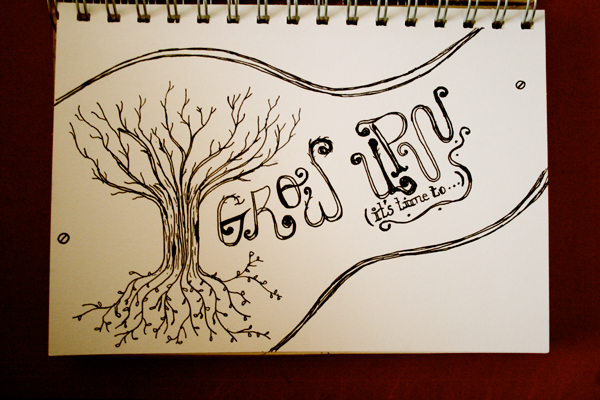 GROW UP
(it's time to...)